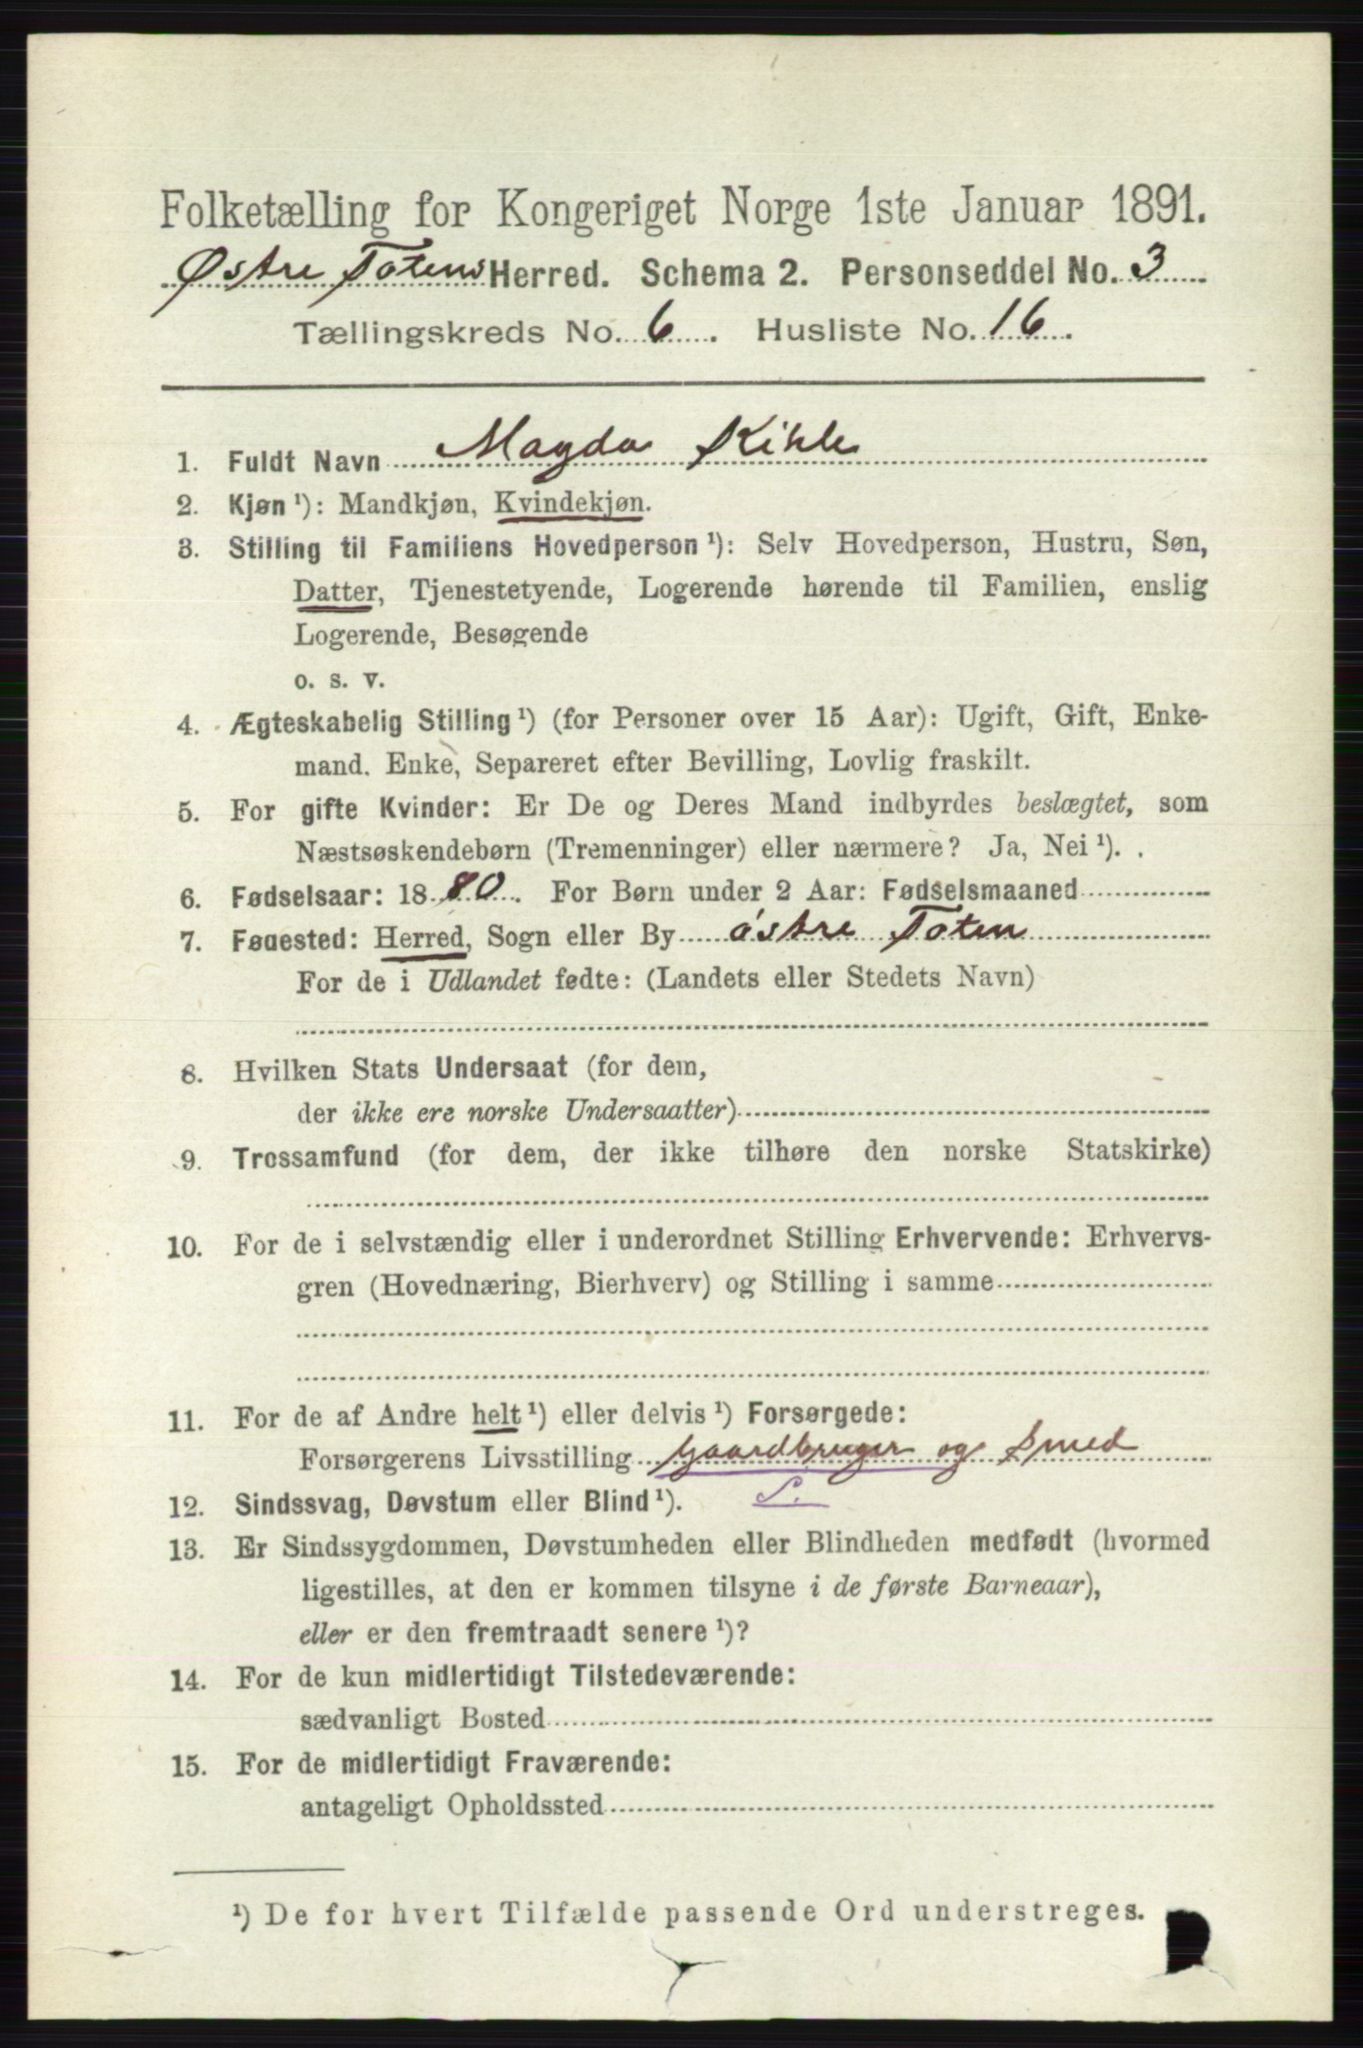 Folketælling for Kongeriget Norge 1ste Januar 1891.
Østre Totens Herred. Schema 2. Personseddel No. 3
Tællingskreds No. 6. Husliste No. 16.
1. Fuldt Navn Magda Kihle
2. Kjøn ¹): Mandkjøn, Kvindekjøn.
3. Stilling til Familiens Hovedperson ¹): Selv Hovedperson, Hustru, Søn,
Datter, Tjenestetyende, Logerende hørende til Familien, enslig
Logerende, Besøgende
o. s. v.
4. Ægteskabelig Stilling ¹) (for Personer over 15 Aar): Ugift, Gift, Enke-
mand. Enke, Separeret efter Bevilling, Lovlig fraskilt.
5. For gifte Kvinder: Er De og Deres Mand indbyrdes beslægtet, som
Næstsøskendebørn (Tremenninger) eller nærmere? Ja, Nei ¹).
6. Fødselsaar: 1880. For Børn under 2 Aar: Fødselsmaaned
7. Fødested: Herred, Sogn eller By østre Toten
For de i Udlandet fødte: (Landets eller Stedets Navn)
8. Hvilken Stats Undersaat (for dem,
der ikke ere norske Undersaatter)
9. Trossamfund (for dem, der ikke tilhøre den norske Statskirke)
10. For de i selvstændig eller i underordnet Stilling Erhvervende: Erhvervs-
gren (Hovednæring, Bierhverv) og Stilling i samme
11. For de af Andre helt ¹) eller delvis ¹) Forsørgede:
Forsørgerens Livsstilling Gaardbruger og Smed
12. Sindssvag, Døvstum eller Blind ¹). S.
13. Er Sindssygdommen, Døvstumheden eller Blindheden medfødt (hvormed
ligestilles, at den er kommen tilsyne i de første Barneaar),
eller er den fremtraadt senere ¹)?
14. For de kun midlertidigt Tilstedeværende:
sædvanligt Bosted
15. For de midlertidigt Fraværende:
antageligt Opholdssted
¹) De for hvert Tilfælde passende Ord understreges.